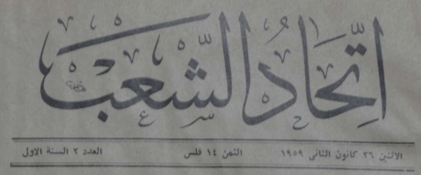 اتحاد الشعب
الاثنين ٢٦ كانون الثاني ١٩٥٩ الثمن ١٤ فلس العدد ٢ السنة الاولى